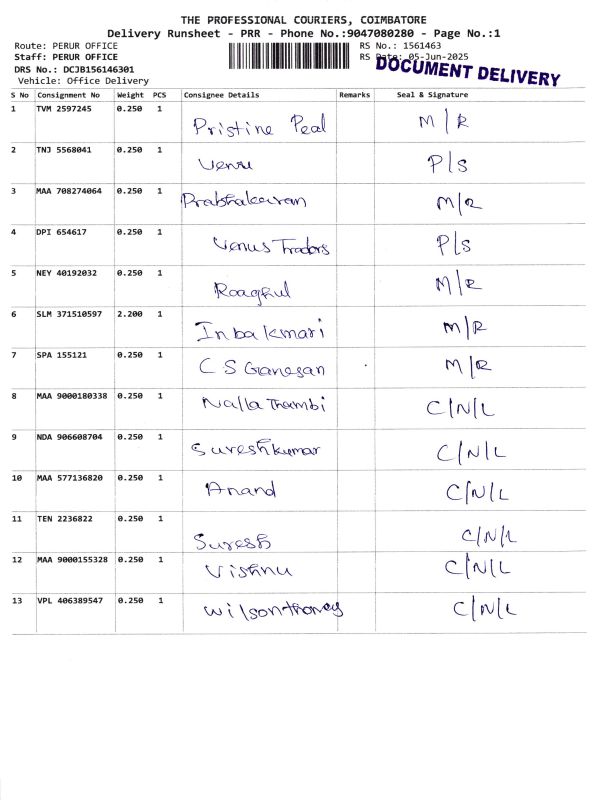 THE PROFESSIONAL COURIERS, COIMBATORE
Delivery Runsheet - PRR - Phone No.:9047080280 - Page No.:1
Route: PERUR OFFICE RS No.: 1561463
Staff: PERUR OFFICE RS Date: 05-Jun-2025
DOCUMENT DELIVERY
DRS No.: DCJB156146301
Vehicle: Office Delivery
S No Consignment No Weight PCS Consignee Details Remarks Seal & Signature
1 TVM 2597245 0.250 1 Pristine Peal M/R
2 TNJ 5568041 0.250 1 Venu P/S
3 MAA 708274064 0.250 1 Prabhakaran M/R
4 DPI 654617 0.250 1 Venus Tradors P/S
5 NEY 40192032 0.250 1 Raagful M/R
6 SLM 371510597 2.200 1 Inbakmari M/R
7 SPA 155121 0.250 1 C S Ganesan M/R
8 MAA 9000180338 0.250 1 Nalla Thambi C/N/L
9 NDA 906608704 0.250 1 Sureshkumar C/N/L
10 MAA 577136820 0.250 1 Anand C/N/L
11 TEN 2236822 0.250 1 Suresh C/N/L
12 MAA 9000155328 0.250 1 Vishnu C/N/L
13 VPL 406389547 0.250 1 Wilsonthomas C/N/L